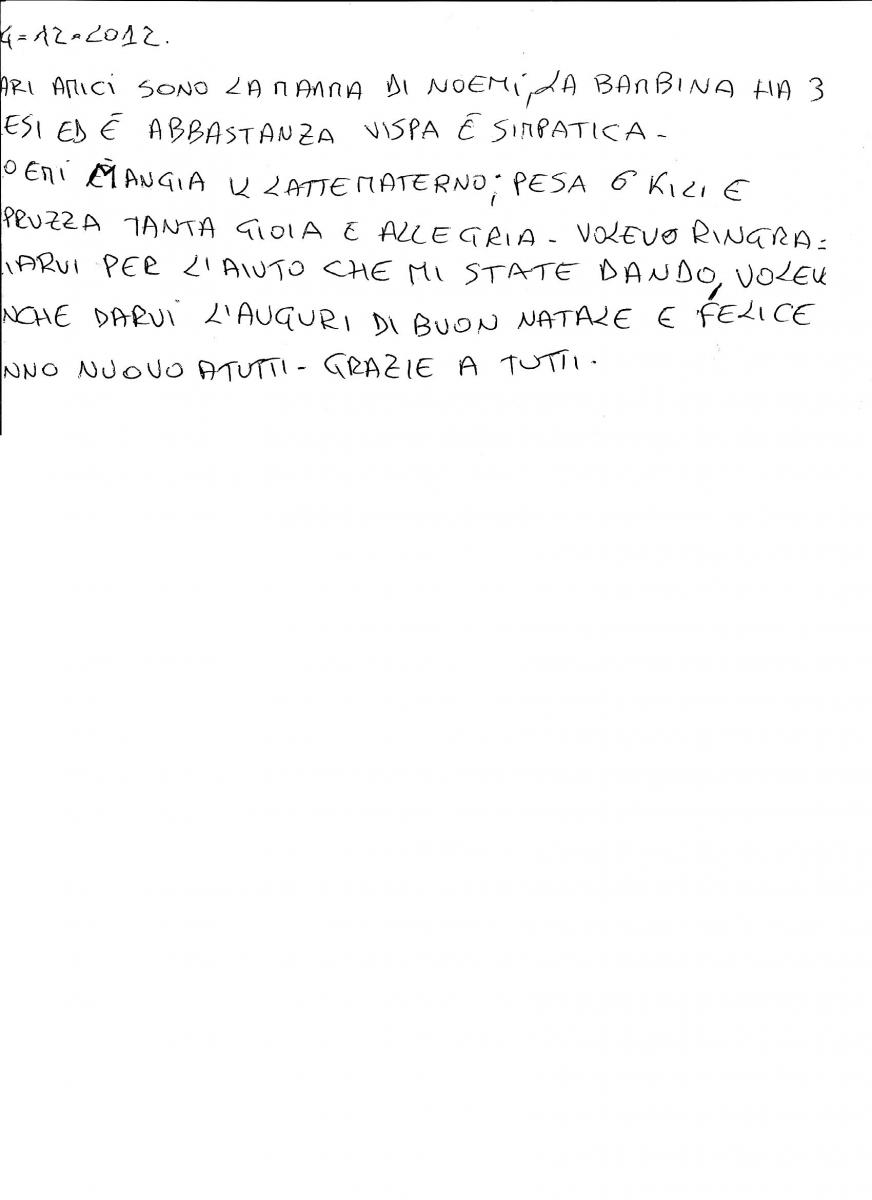 4=12=2012.
ARI AMICI SONO LA MAMMA DI NOEMI, LA BAMBINA HA 3
ESI ED É ABBASTANZA VISPA É SIMPATICA-
OEMI MANGIA IL LATTE MATERNO; PESA 6 KILI E
PRUZZA TANTA GIOIA E ALLEGRIA- VOLEVO RINGRA=
IARVI PER L'AIUTO CHE MI STATE DANDO, VOLEV
NCHE DARVI L'AUGURI DI BUON NATALE E FELICE
NNO NUOVO A TUTTI- GRAZIE A TUTTI.